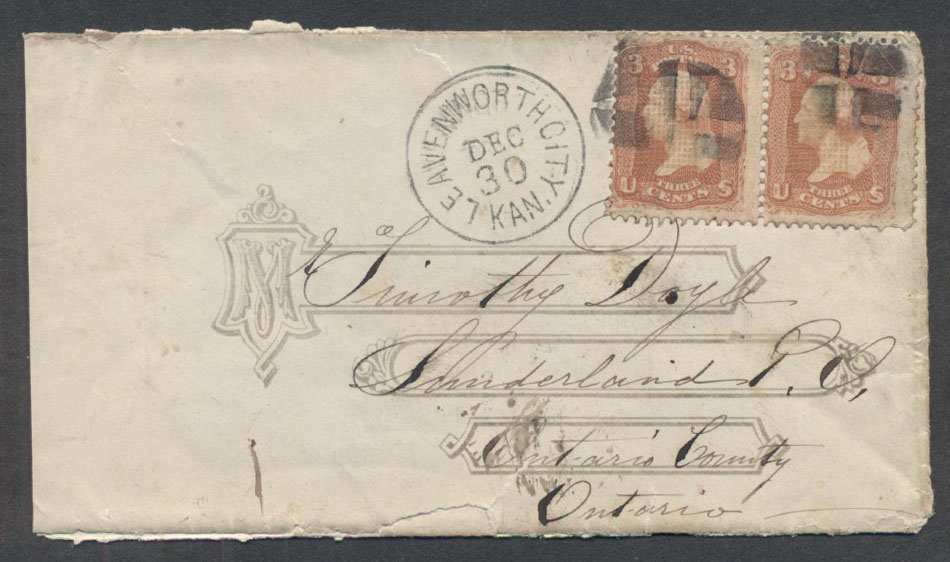 LEAVENWORTH CITY, KAN.
DEC
30
U.S.
3 3
THREE
CENTS
U S
U.S.
3
THREE
CENTS
U S
M
r Timothy Doyle
Sunderland P. O,
Ontario County
Ontario